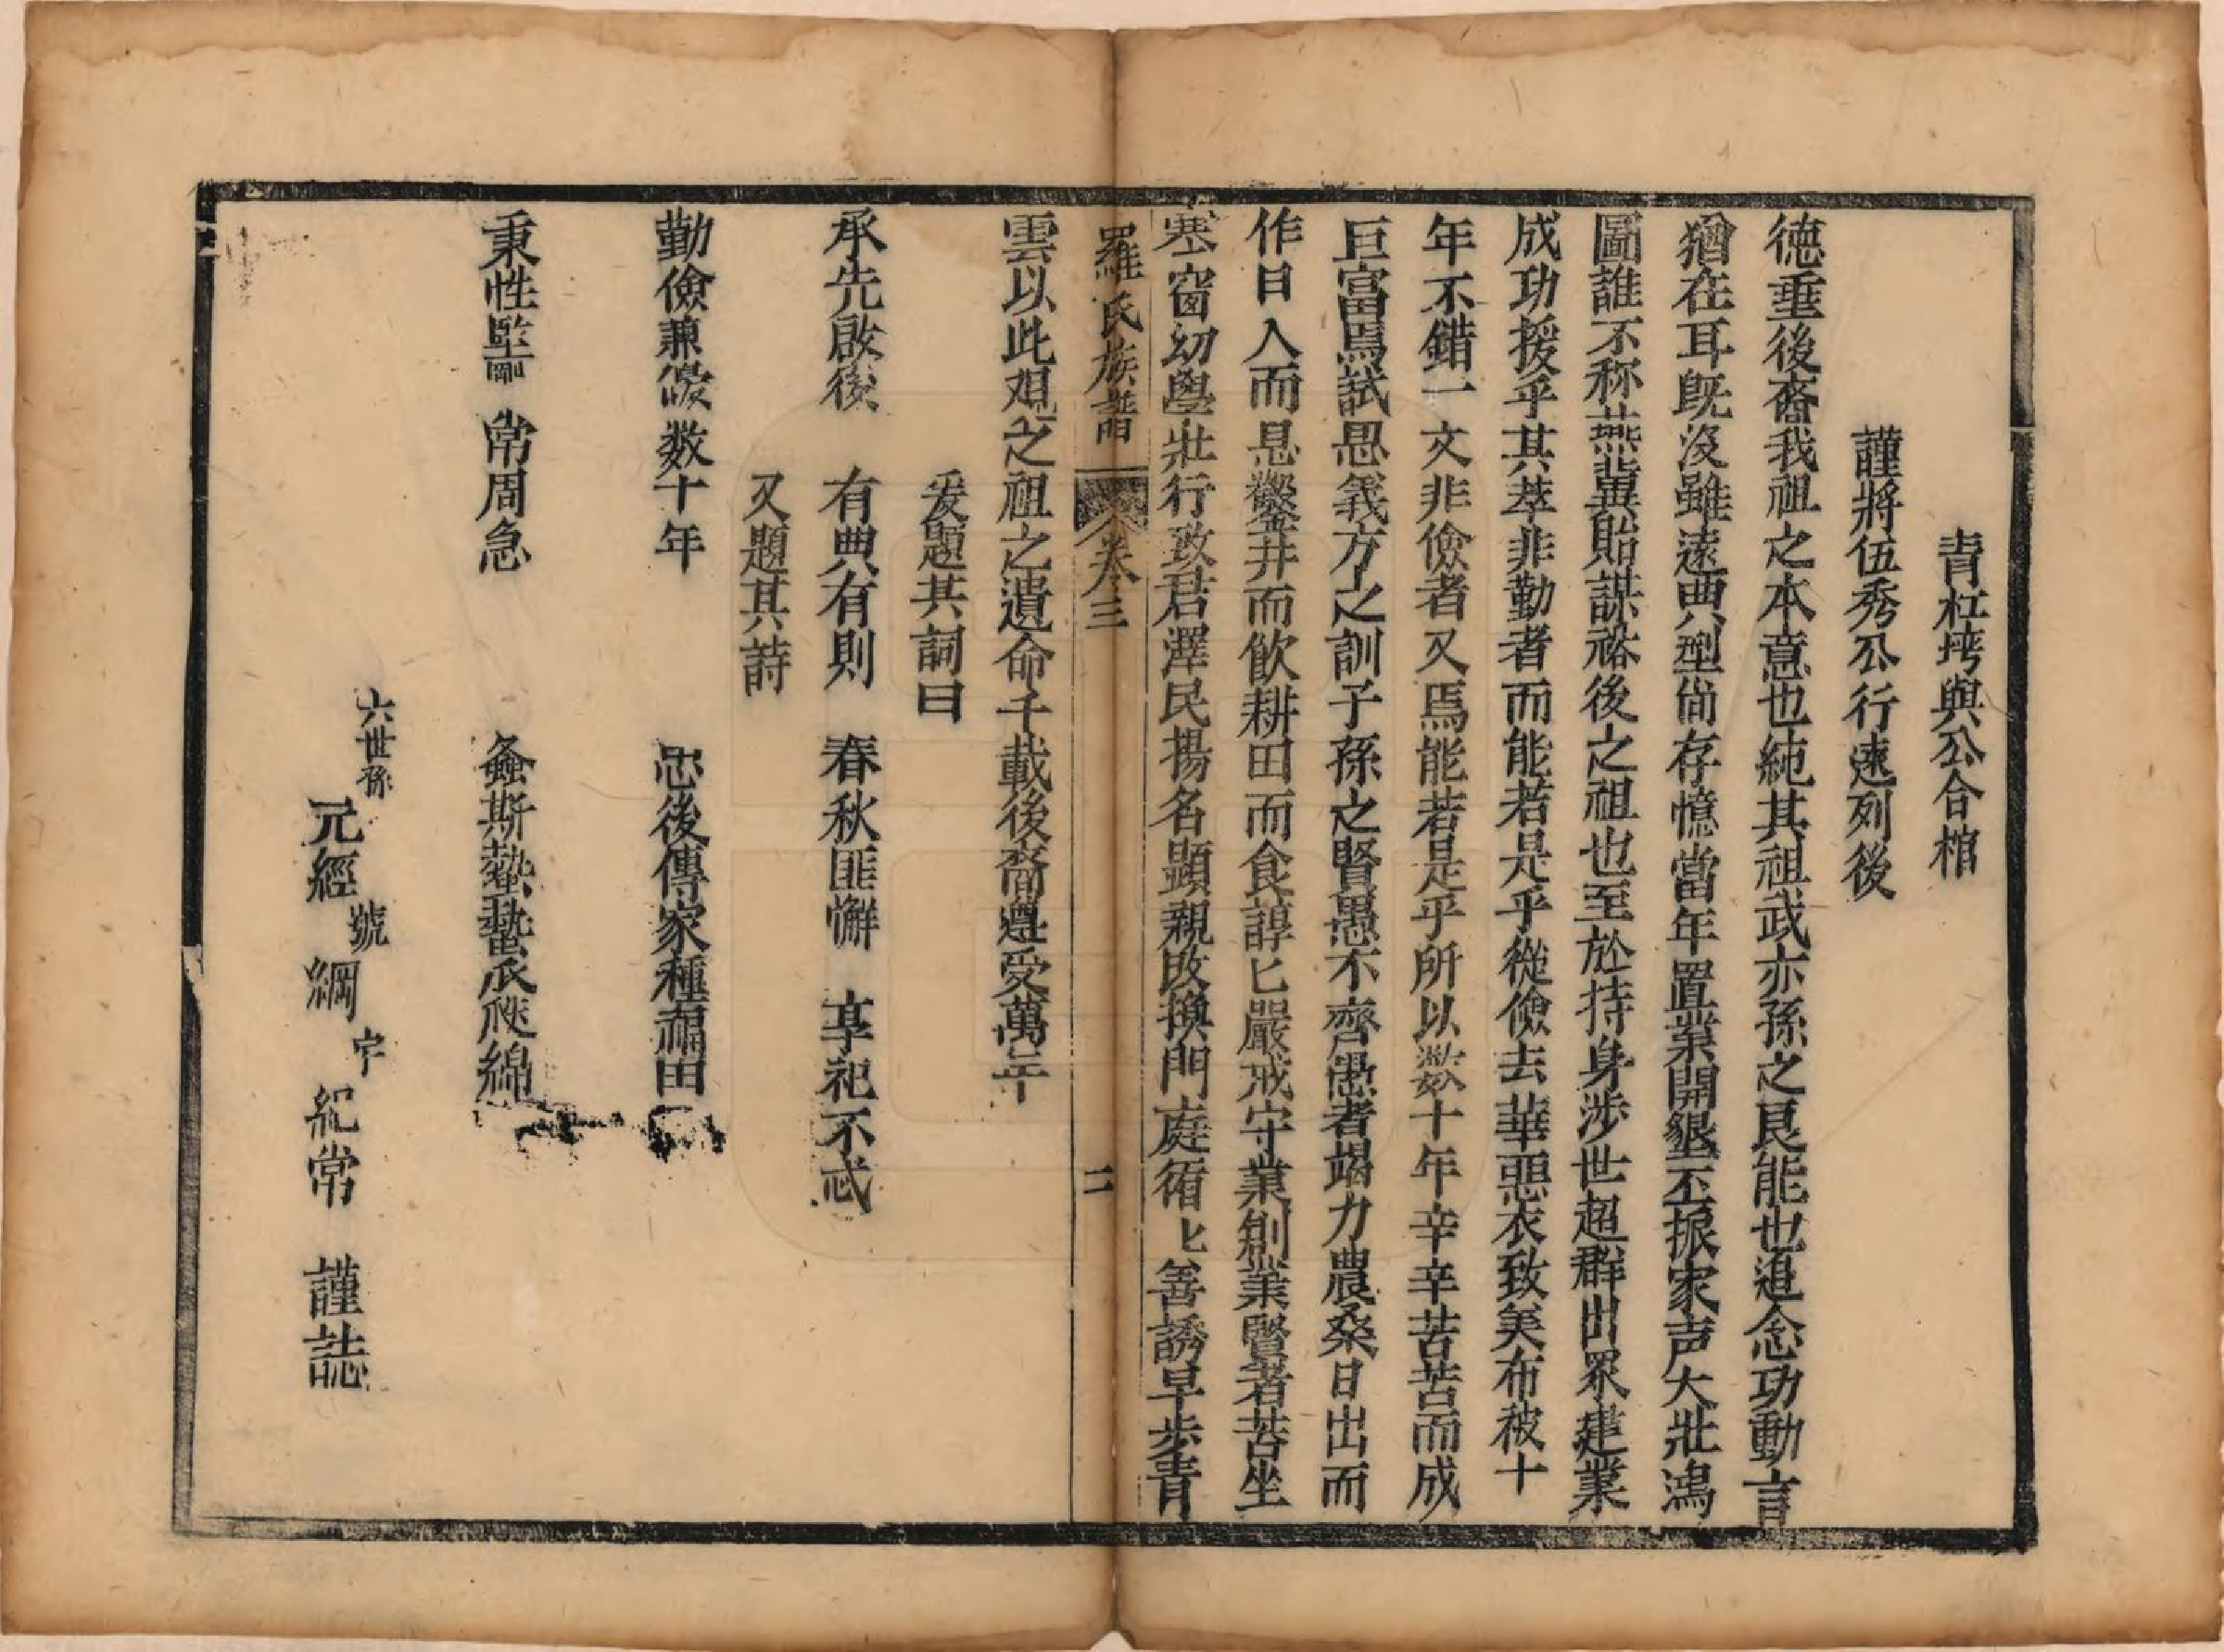 青杠垮與公合棺
謹將伍秀公行速列後
德垂後裔我祖之本意也純其祖武亦孫之良能也追念功動言
猶在耳既沒雖遠典型尚存憶當年置業開墾丕振家声大壯鴻
圖誰不称燕冀貽謀裕後之祖也至於持身涉世超群出眾建業
成功援乎其萃非勤者而能若是乎從儉去華惡衣致美布被十
年不錯一文非儉者又焉能若是乎所以数十年辛辛苦苦而成
巨富焉試思義方之訓子孫之賢愚不齊愚者竭力農桑日出而
作日入而息鑿井而飲耕田而食諄匕嚴戒守業創業賢者苦坐
寒窗幼學壯行致君澤民揚名顯親改換門庭循匕善誘早步青
羅氏族譜 卷三 二
雲以此觀之祖之遺命千載後裔遵受萬年
爰題其詞曰
承先啟後 有典有則 春秋匪懈 享祀不忒
又題其詩
勤儉兼優数十年 忠後傳家種福田
秉性監剛常周急 螽斯蟄蟄瓜瓞綿
六世孫 元經 號 綱 字 紀常 謹誌